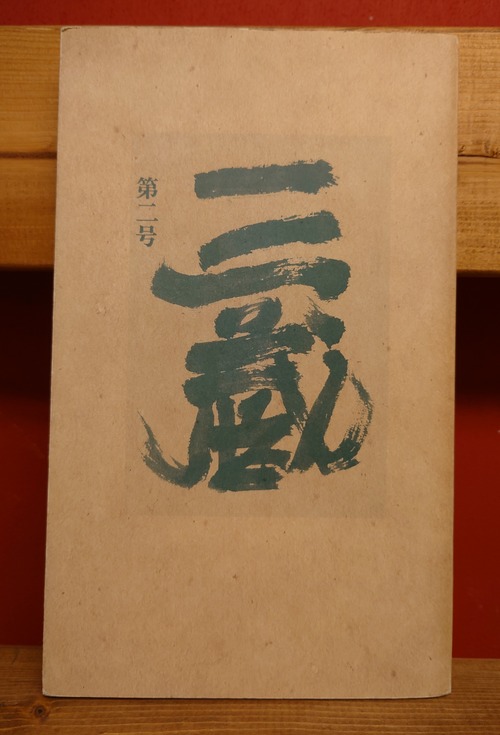 三蔵
第二号